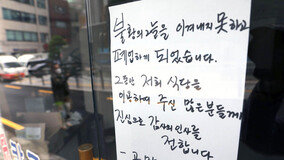 불황의 그늘을 이겨내지 못하고
폐업하게 되었습니다.
그동안 저희 식당을
이용하여 주신 많은분들께
진심으로 감사의 인사를
전합니다